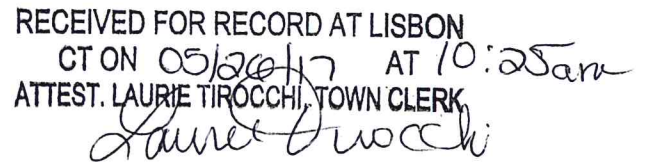 RECEIVED FOR RECORD AT LISBON
CT ON 05/26/17 AT 10:25am
ATTEST. LAURIE TIROCCHI, TOWN CLERK
Laurie Tirocchi